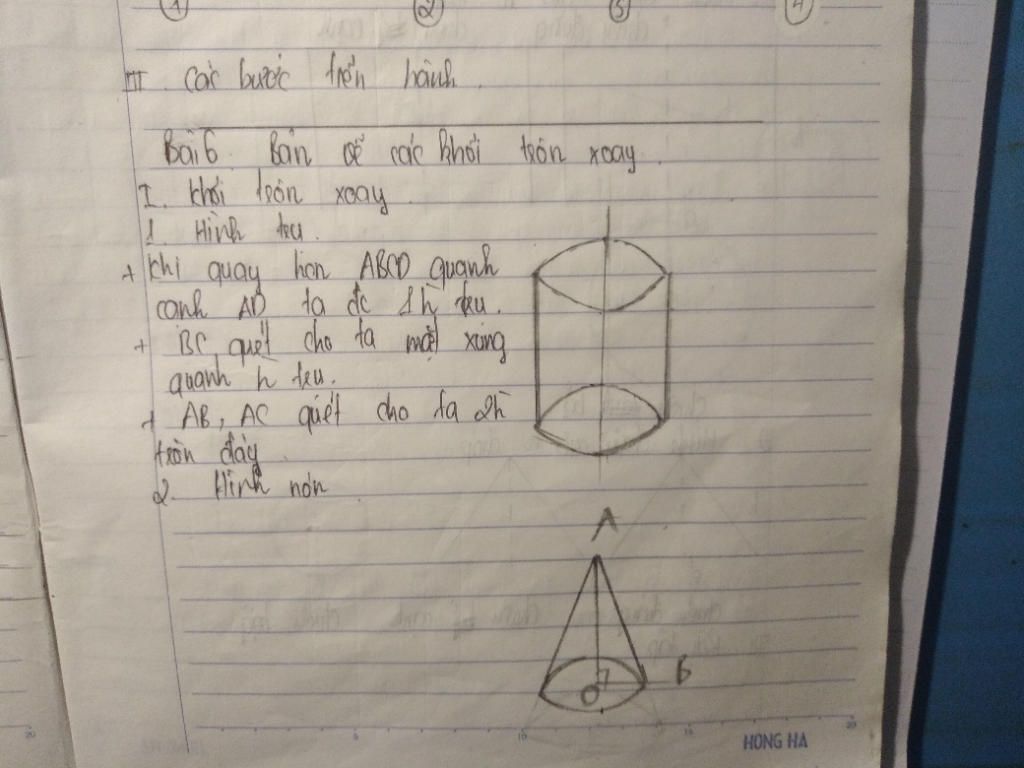 1 2 3 4
III. Các bước tiến hành.
Bài 6 Bản vẽ các khối tròn xoay.
I. Khối tròn xoay
1. Hình trụ.
+ Khi quay hcn ABCD quanh
cạnh AD ta đc 1h trụ.
+ BC quét cho ta mặt xung
quanh h trụ.
+ AB, AC quét cho ta 2h
tròn đáy
2. Hình nón
A
O
B
5 10 15 20
HONG HA
20